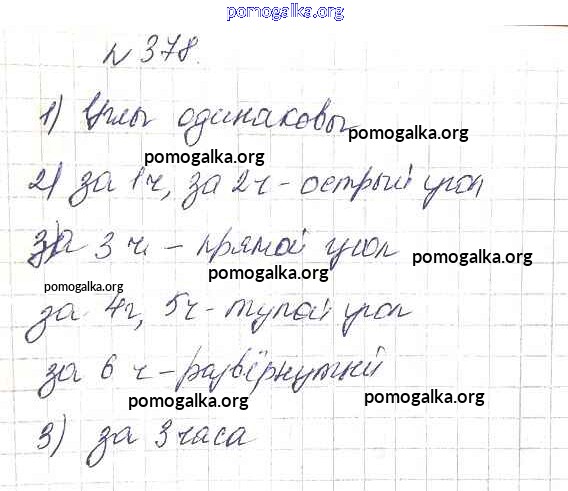 pomogalka.org
N 378.
1) Углы одинаковы
pomogalka.org
pomogalka.org
2) за 1ч, за 2ч - острый угол
за 3 ч - прямой угол
pomogalka.org
pomogalka.org
за 4ч, 5ч - тупой угол
за 6 ч - развёрнутый
pomogalka.org
pomogalka.org
3) за 3 часа